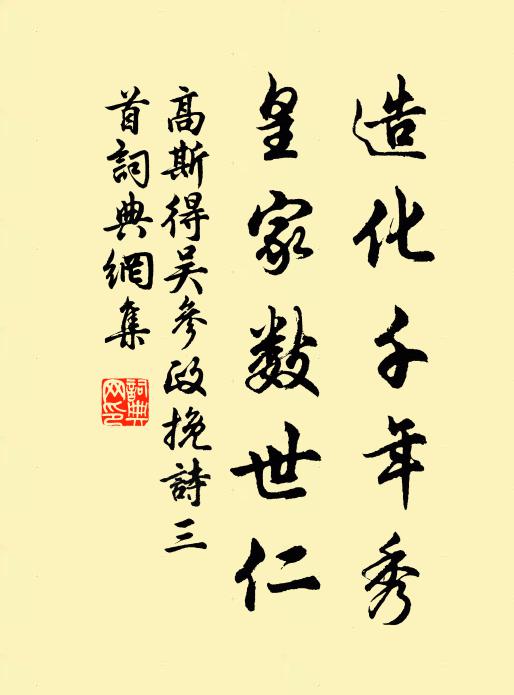 造化千年秀
皇家数世仁
高斯得吴參政挽詩三
首詞典網集
詞典
网印